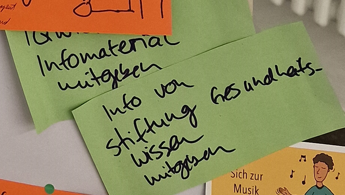 Infomaterial
mitgeben
Info von
stiftung Gesundheits-
wissen
mitgeben
Sich zur
Musik